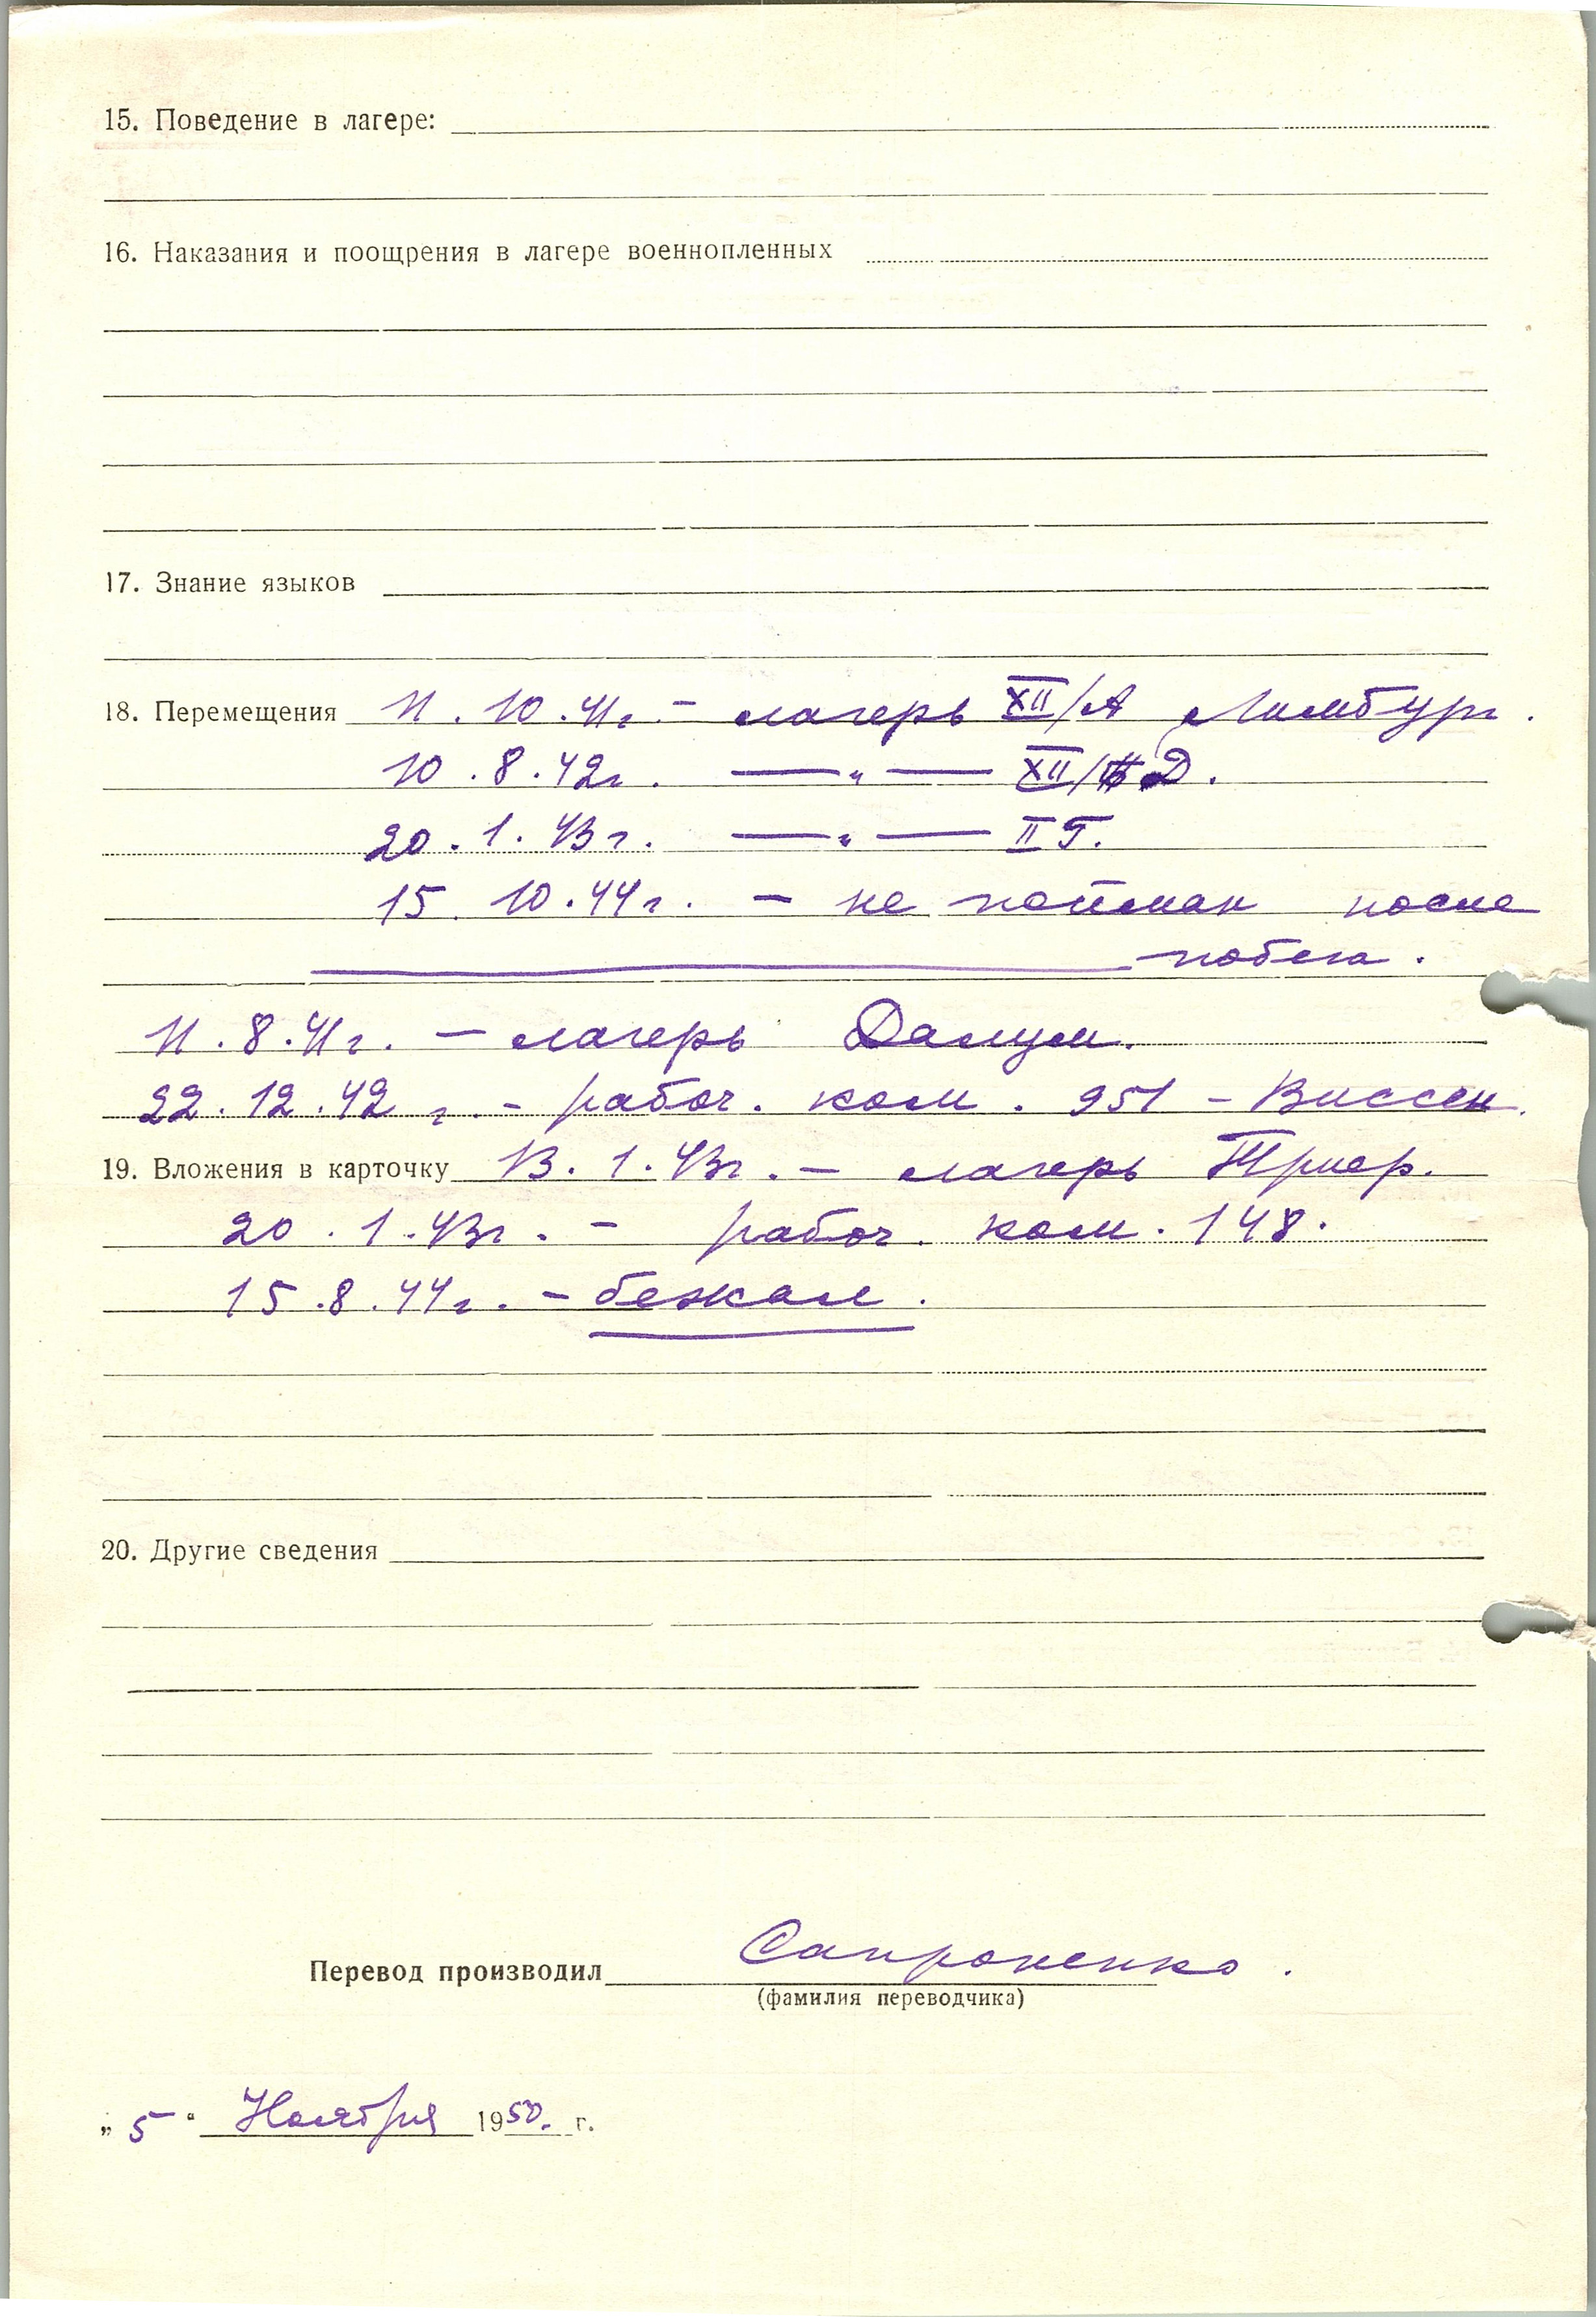 15. Поведение в лагере:
16. Наказания и поощрения в лагере военнопленных
17. Знание языков
18. Перемещения 11.10.41г. - лагерь XII/А Лимбург.
10.8.42г. —„— XII/Д.
20.1.43г. —„— II Г.
15.10.44г. - не пойман после
побега.
11.8.41г. - лагерь Далум.
22.12.42г. - рабоч. ком. 951 - Виссен.
19. Вложения в карточку 13.1.43г. - лагерь Триер.
20.1.43г. - рабоч. ком. 148.
15.8.44г. - бежал.
20. Другие сведения
Перевод производил Сапроненко.
(фамилия переводчика)
„5" Ноября 1950. г.